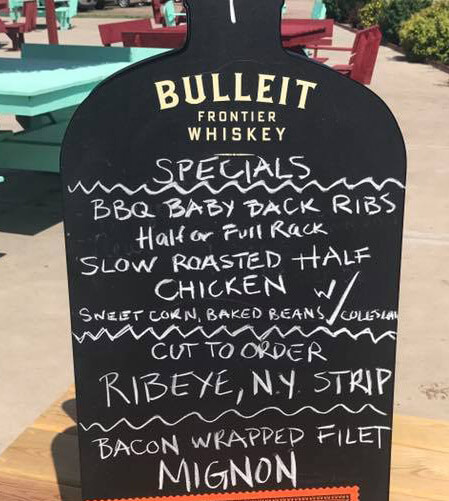 BULLEIT
FRONTIER
WHISKEY
SPECIALS
BBQ BABY BACK RIBS
Half or Full Rack
SLOW ROASTED HALF
CHICKEN W/
SWEET CORN, BAKED BEANS, COLESLAW
CUT TO ORDER
RIBEYE, N.Y. STRIP
BACON WRAPPED FILET
MIGNON